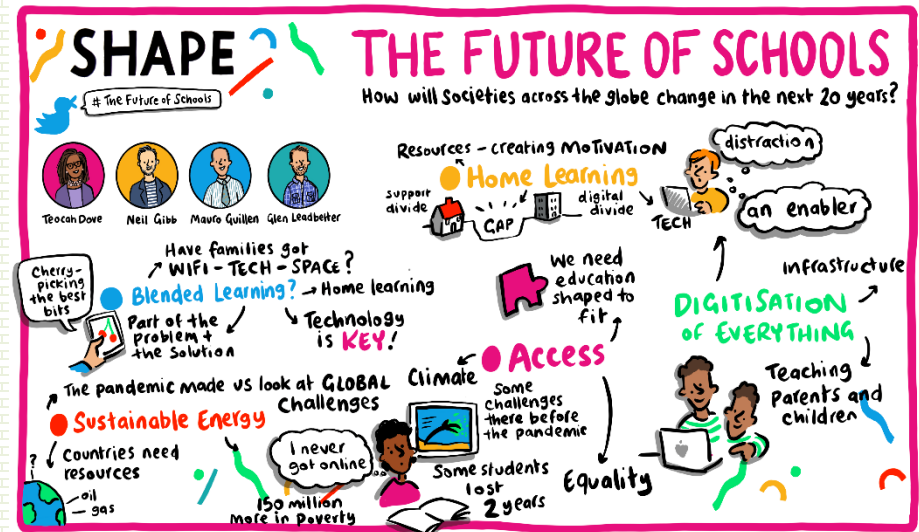 SHAPE
# The Future of Schools
THE FUTURE OF SCHOOLS
How will Societies across the globe change in the next 20 years?
Teocah Dove
Neil Gibb
Mauro Guillen
Glen Leadbetter
Resources - creating MOTIVATION
Home Learning
support
divide
GAP
digital
divide
TECH
distraction
an enabler
Have families got
WIFI - TECH - SPACE?
Cherry-
picking
the best
bits
Blended Learning?
Home learning
Part of the
problem +
the Solution
Technology
is KEY!
We need
education
shaped to
fit
Access
Climate
Some
challenges
there before
the pandemic
Equality
DIGITISATION
OF EVERYTHING
infrastructure
Teaching
Parents and
children
The pandemic made us look at GLOBAL
Challenges
Sustainable Energy
?
Countries need
resources
oil
gas
I never
got online
150 million
more in poverty
Some students
lost
2 years